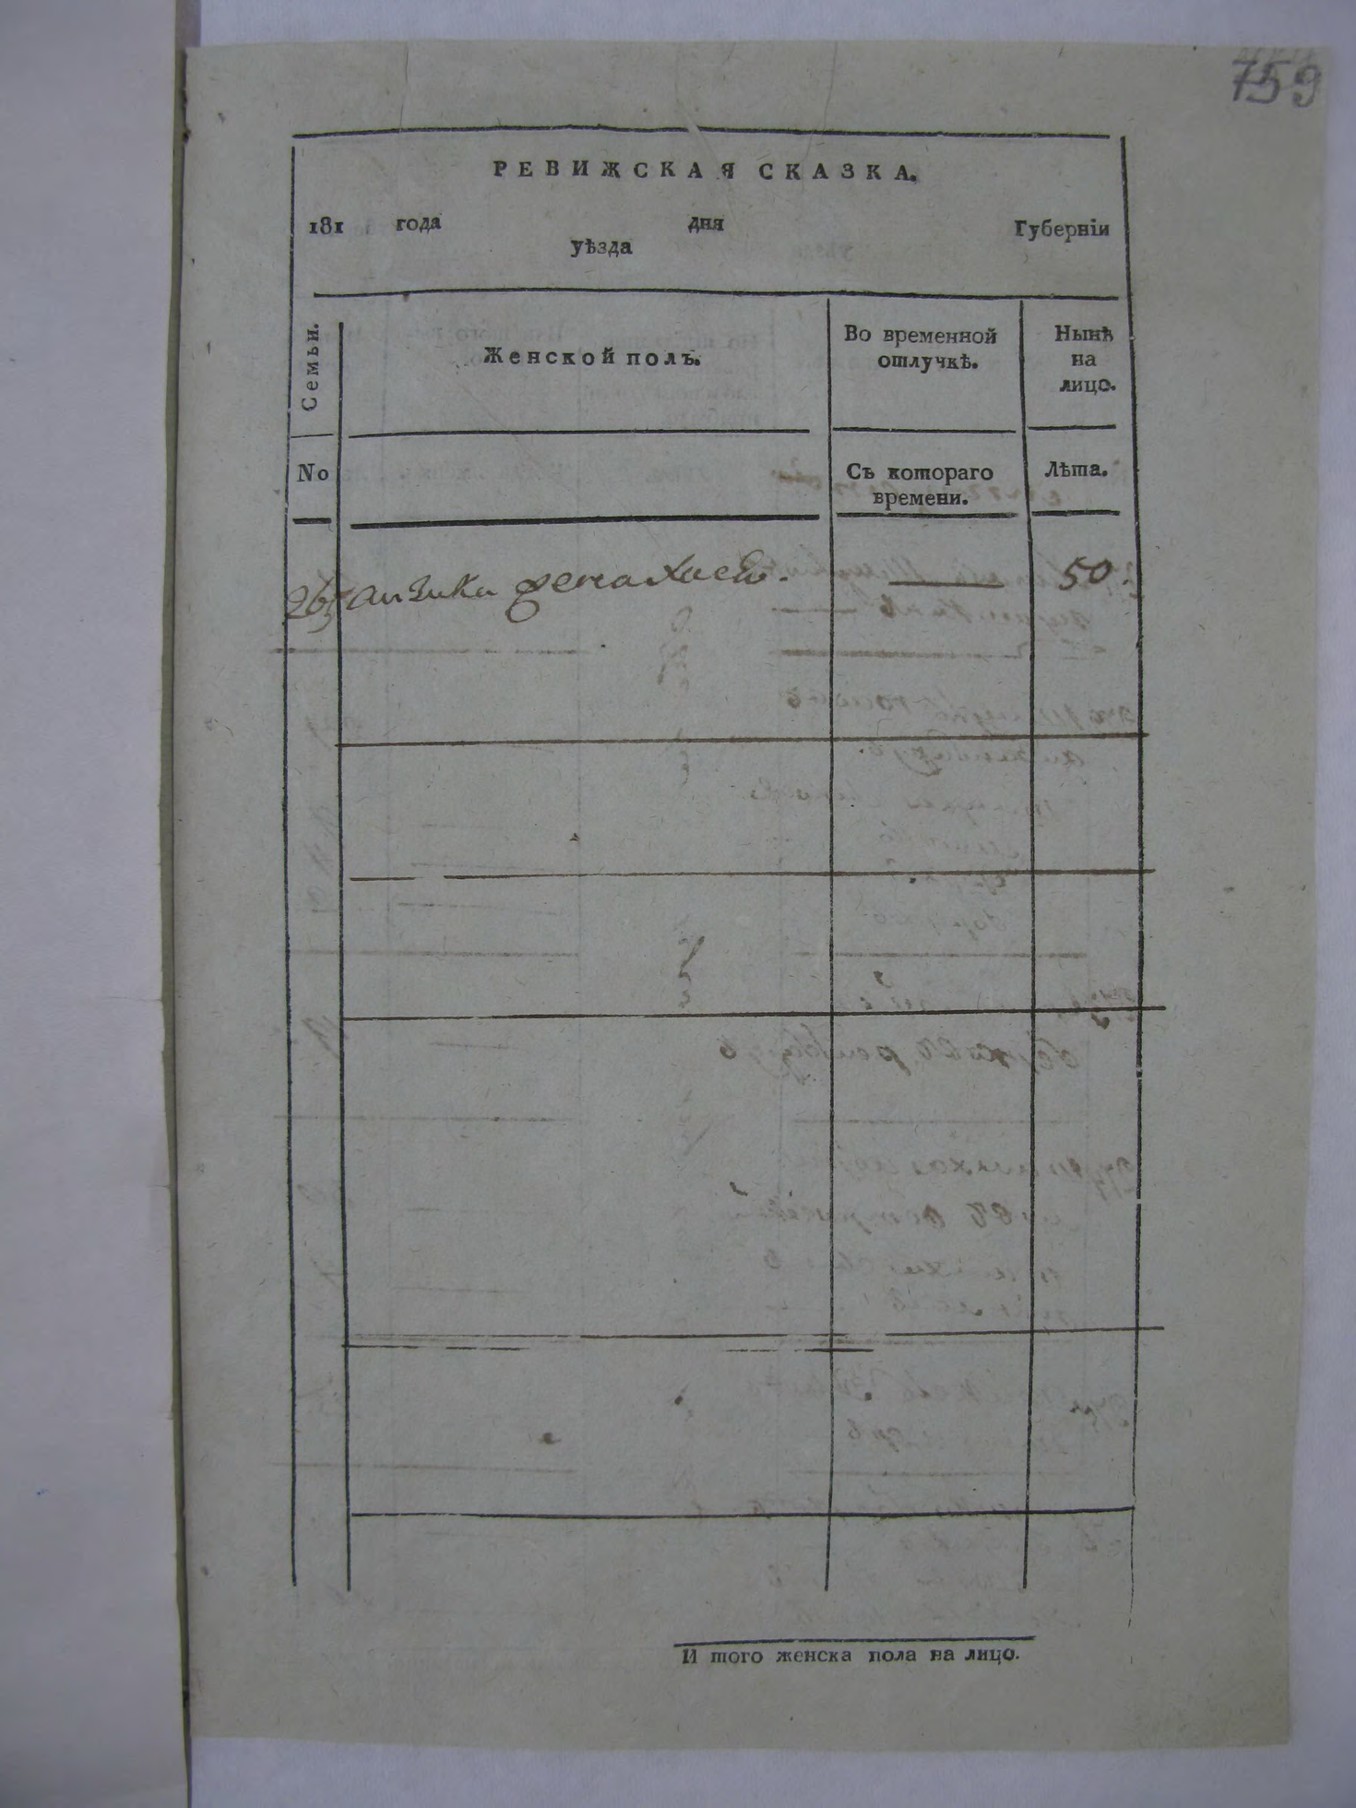 759
РЕВИЖСКАЯ СКАЗКА.
181 года дня Губерніи
уѣзда
Семьи.
Женской полъ.
Во временной отлучкѣ.
Нынѣ на лицо.
No
Съ котораго времени.
Лѣта.
265 жена 50.
И того женска пола на лицо.